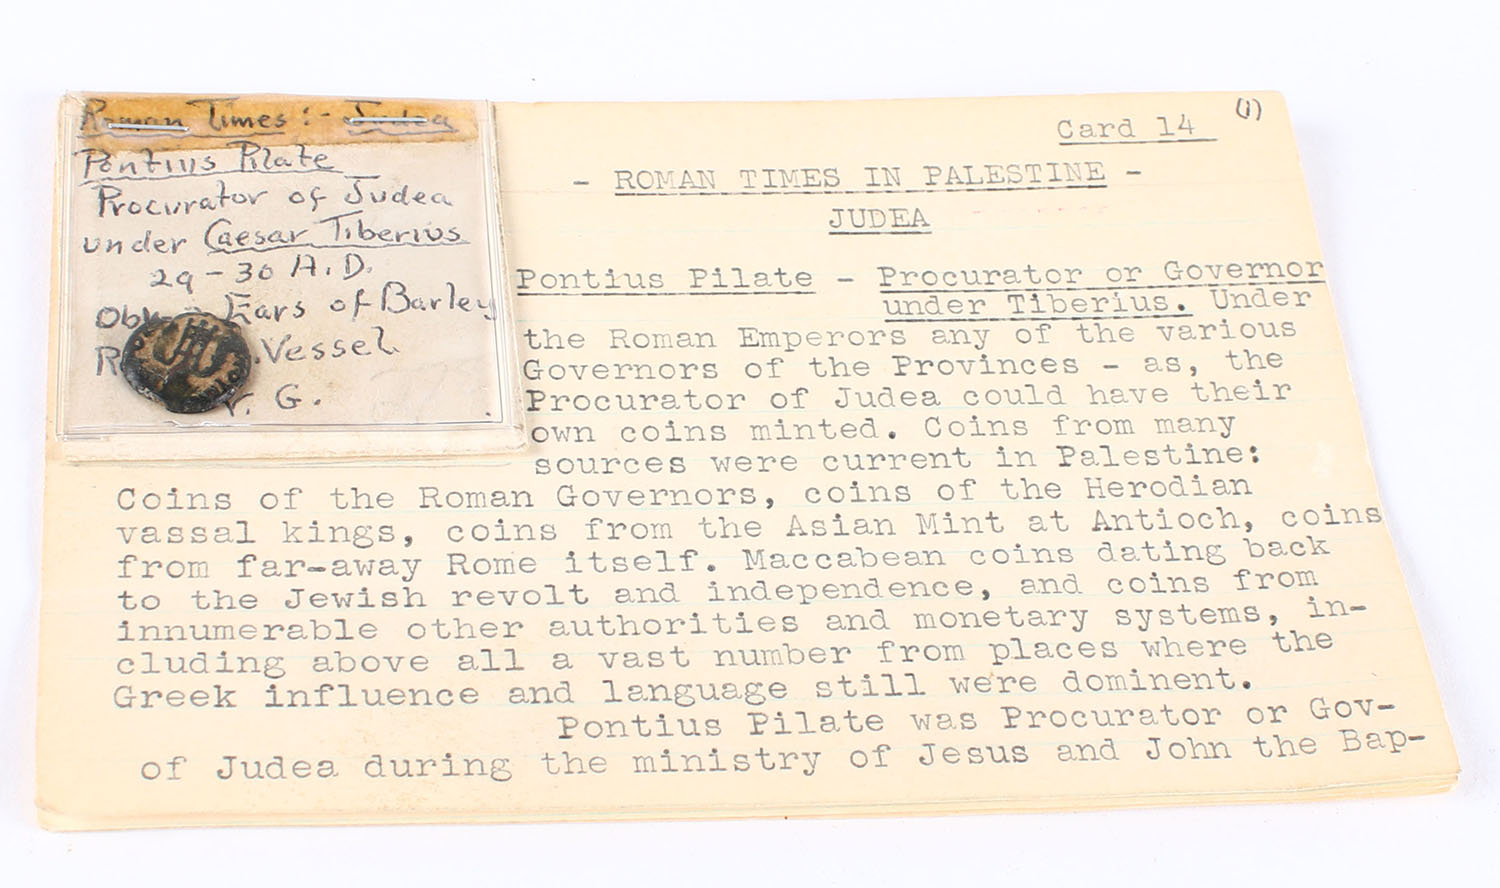 Roman Times:- Judea
Pontius Pilate
Procurator of Judea
under Caesar Tiberius
29-30 A.D.
Ears of Barley
Vessel.
V. G.
Card 14 (1)
- ROMAN TIMES IN PALESTINE -
JUDEA
Pontius Pilate - Procurator or Governor
under Tiberius. Under
the Roman Emperors any of the various
Governors of the Provinces - as, the
Procurator of Judea could have their
own coins minted. Coins from many
sources were current in Palestine:
Coins of the Roman Governors, coins of the Herodian
vassal kings, coins from the Asian Mint at Antioch, coins
from far-away Rome itself. Maccabean coins dating back
to the Jewish revolt and independence, and coins from
innumerable other authorities and monetary systems, in-
cluding above all a vast number from places where the
Greek influence and language still we're dominent.
Pontius Pilate was Procurator or Gov-
of Judea during the ministry of Jesus and John the Bap-